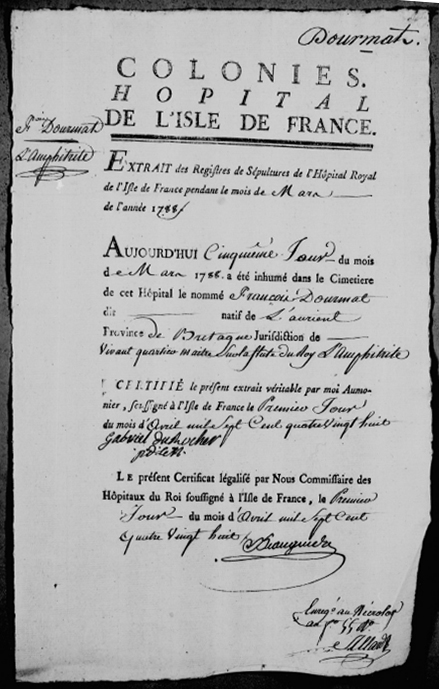 Dourmat.
COLONIES.
HOPITAL
DE L'ISLE DE FRANCE.
Dourmat
L'Amphitrite
EXTRAIT des Registres de Sépultures de l'Hôpital Royal
de l'Isle de France pendant le mois de Mars
de l'année 1788
AUJOURD'HUI Cinquième Jour du mois
de Mars 1788. a été inhumé dans le Cimetiere
de cet Hôpital le nommé François Dourmat
dit natif de L'aurient
Province de Bretagne Jurisdiction de
Vivant quartier maitre Sur la flute du Roy L'Amphitrite
CERTIFIÉ le présent extrait véritable par moi Aumo-
nier, soussigné à l'Isle de France le Premier Jour
du mois d'Avril mil Sept Cent quatre vingt huit
Gabriel
LE présent Certificat légalisé par Nous Commissaire des
Hôpitaux du Roi soussigné à l'Isle de France, le Premier
Jour du mois d'Avril mil Sept Cent
quatre Vingt huit
Enregé au